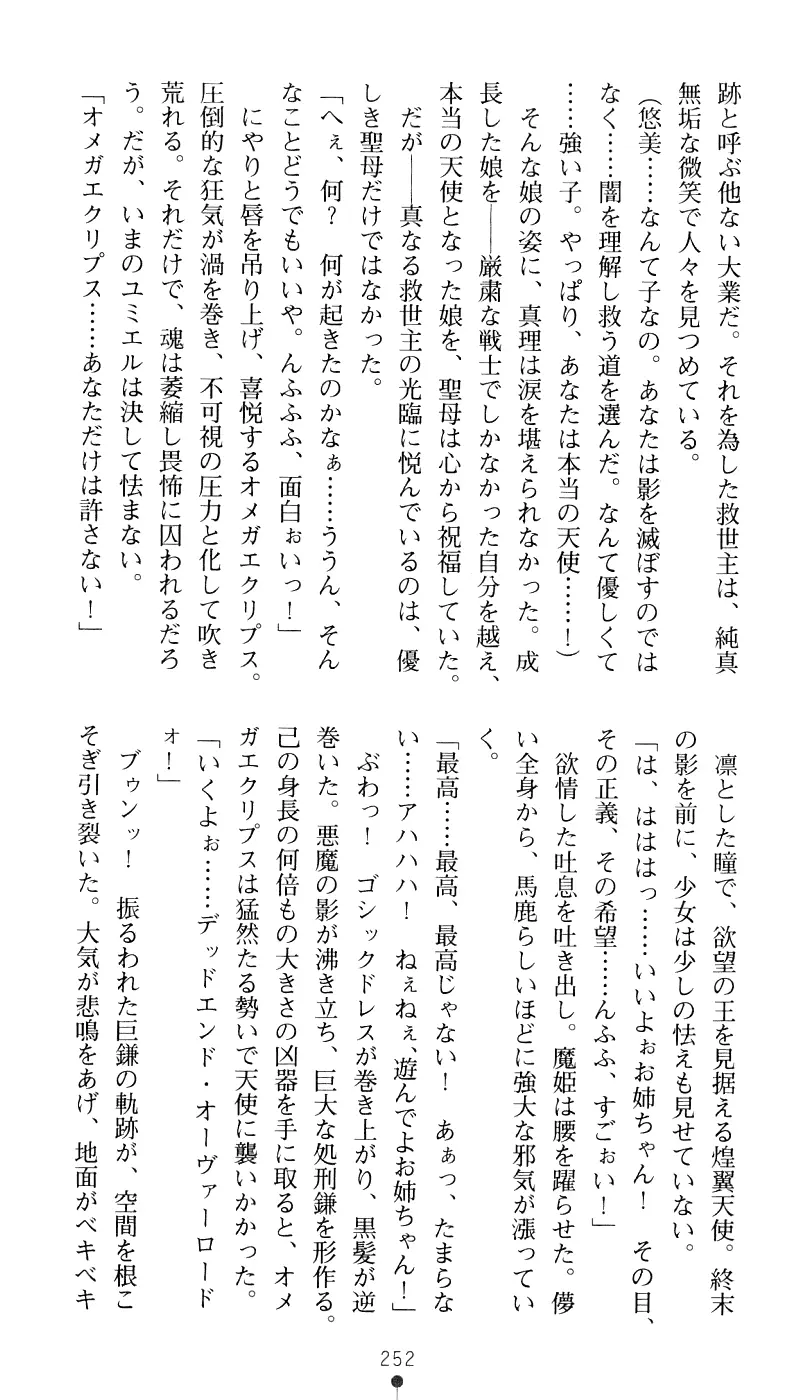 跡と呼ぶ他ない大業だ。それを為した救世主は、純真
無垢な微笑で人々を見つめている。
（悠美……なんて子なの。あなたは影を滅ぼすのでは
なく……闇を理解し救う道を選んだ。なんて優しくて
……強い子。やっぱり、あなたは本当の天使……！）
　そんな娘の姿に、真理は涙を堪えられなかった。成
長した娘を――厳粛な戦士でしかなかった自分を越え、
本当の天使となった娘を、聖母は心から祝福していた。
　だが――真なる救世主の光臨に悦んでいるのは、優
しき聖母だけではなかった。
「へぇ、何？　何が起きたのかなぁ……ううん、そん
なことどうでもいいや。んふふふ、面白ぉいっ！」
　にやりと唇を吊り上げ、喜悦するオメガエクリプス。
圧倒的な狂気が渦を巻き、不可視の圧力と化して吹き
荒れる。それだけで、魂は萎縮し畏怖に囚われるだろ
う。だが、いまのユミエルは決して怯まない。
「オメガエクリプス……あなただけは許さない！」
　凛とした瞳で、欲望の王を見据える煌翼天使。終末
の影を前に、少女は少しの怯えも見せていない。
「は、はははっ……いいよぉお姉ちゃん！　その目、
その正義、その希望……んふふ、すごぉい！」
　欲情した吐息を吐き出し。魔姫は腰を躍らせた。儚
い全身から、馬鹿らしいほどに強大な邪気が漲ってい
く。
「最高……最高、最高じゃない！　あぁっ、たまらな
い……アハハハ！　ねぇねぇ、遊んでよお姉ちゃん！」
　ぶわっ！　ゴシックドレスが巻き上がり、黒髪が逆
巻いた。悪魔の影が沸き立ち、巨大な処刑鎌を形作る。
己の身長の何倍もの大きさの凶器を手に取ると、オメ
ガエクリプスは猛然たる勢いで天使に襲いかかった。
「いくよぉ……デッドエンド・オーヴァーロード
ォ！」
　ブゥンッ！　振るわれた巨鎌の軌跡が、空間を根こ
そぎ引き裂いた。大気が悲鳴をあげ、地面がベキベキ
252